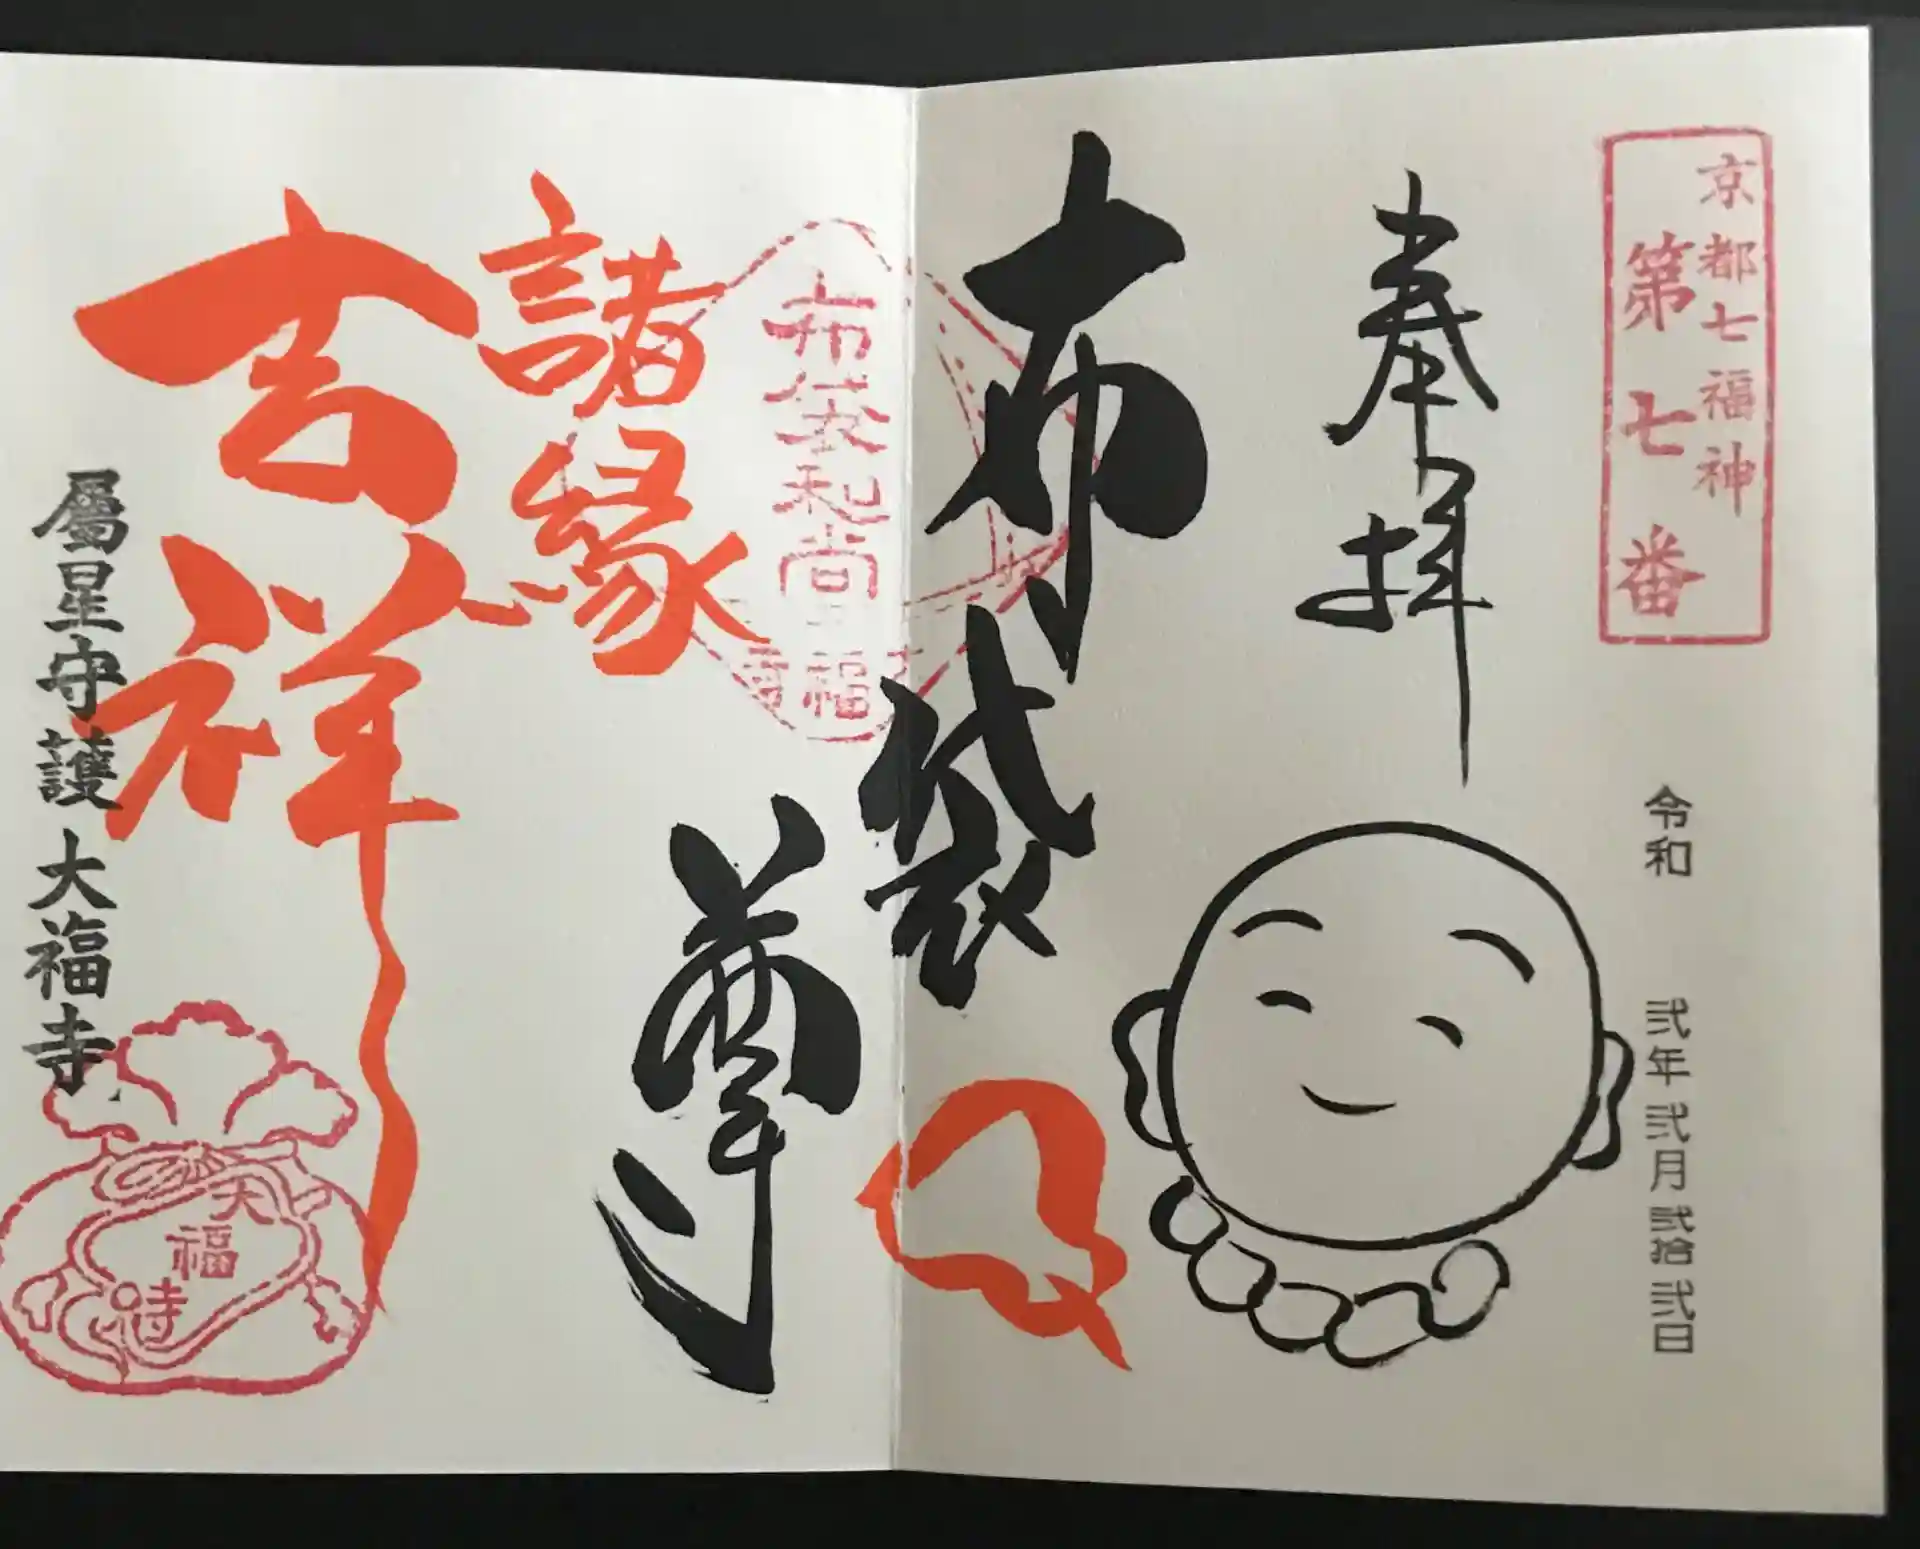 京都七福神
第七番
奉拝
令和 弐年弐月弐拾弐日
布袋尊
布袋和尚
大福寺
諸縁
吉祥
屬星守護 大福寺
大福寺